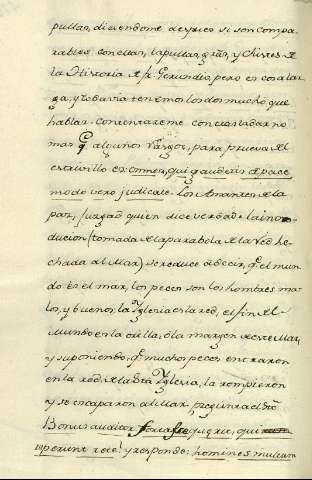 pullas, diciendome despues si son compa-
rables con ellas, las pullas, gras, y chistes de
la Historia de fr. Gerundio, pero es cosa lar-
ga, y todavia tenemos los dos mucho que
hablar. Contentareme con trasladar no
mas q. algunos rasgos, para prueva del
estrivillo omnes, qui gaudetis de pace
modo vero judicate. los Amantes de la
paz, juzgad quien dice verdad. la
duccion (tomada de la parabola de la red he-
chada al Mar) se reduce a decir, q. el mun-
do es el mar, los peces son los hombres ma-
los, y buenos, la Yglesia en la red, el fin del
Mundo en la orilla, ó la margen de este Mar,
y suponiendo, q. muchos peces entraron
en la red de la Sta Yglesia, la rompieron
y se escaparon al Mar, pregunta el Sto
Bonus auditor quærit, qui
ruperunt rete? y responde: homines multum